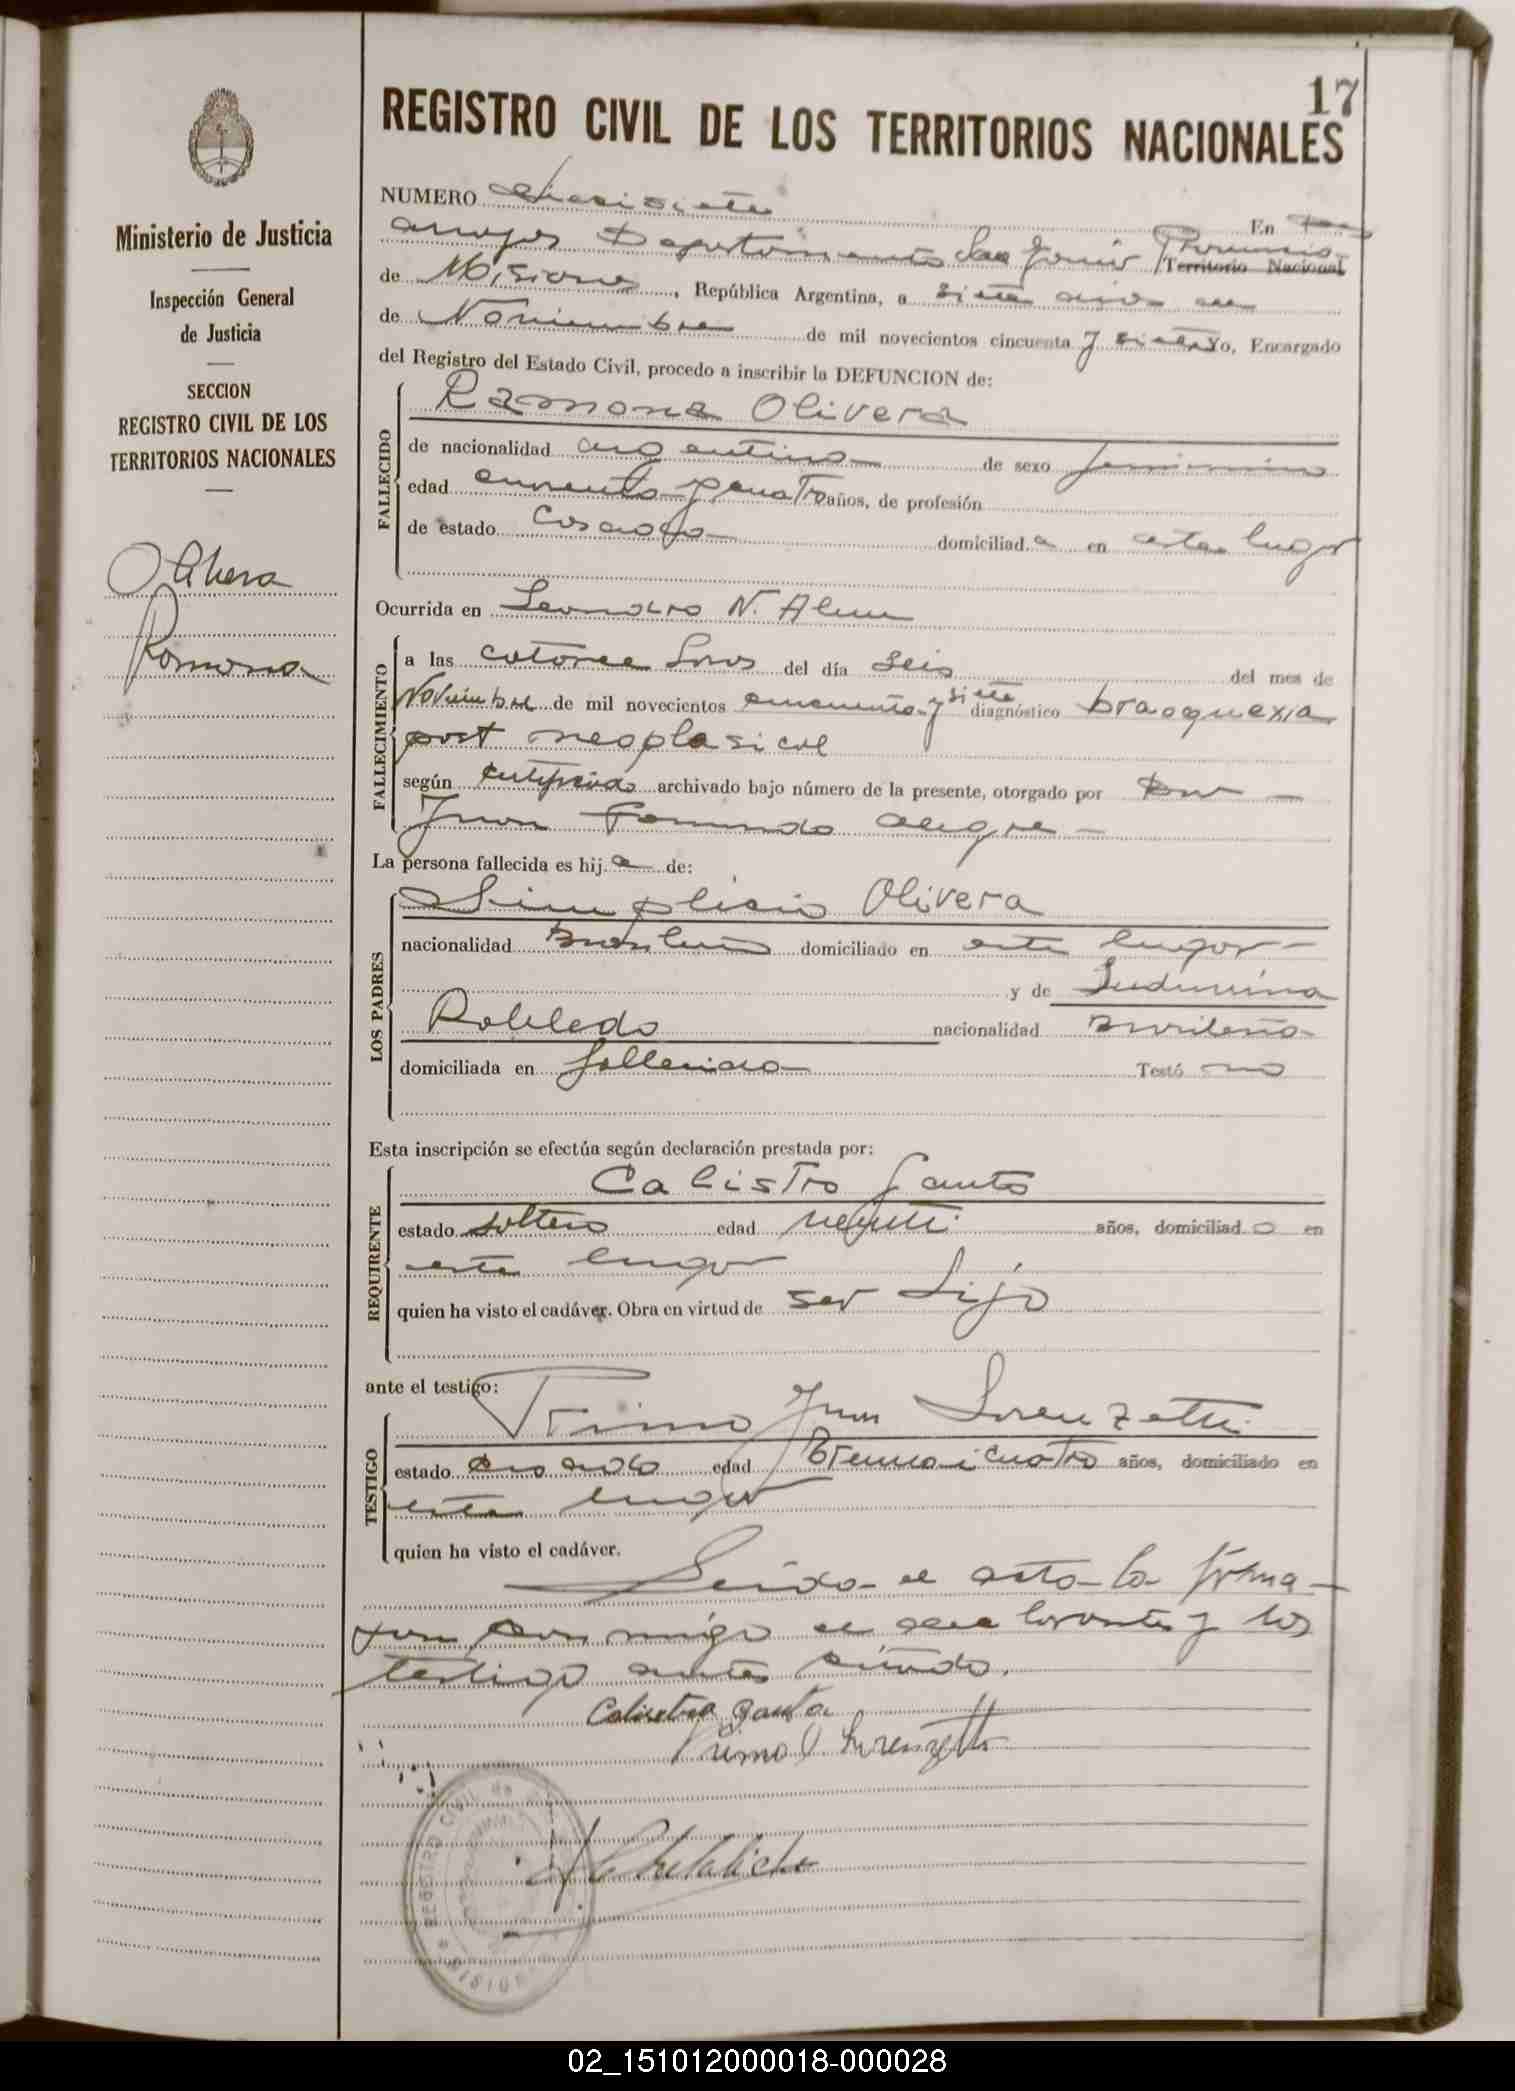 17
REGISTRO CIVIL DE LOS TERRITORIOS NACIONALES
Ministerio de Justicia
Inspección General
de Justicia
SECCION
REGISTRO CIVIL DE LOS
TERRITORIOS NACIONALES
Olivera
Ramona
NUMERO diecisiete En Dos
arroyos Departamento Provincia
Territorio Nacional
de Misiones, República Argentina, a siete dias de
de Noviembre de mil novecientos cincuenta y siete Yo, Encargado
del Registro del Estado Civil, procedo a inscribir la DEFUNCION de:
FALLECIDO
Ramona Olivera
de nacionalidad argentina de sexo femenino
edad cuarenta y cuatro años, de profesión
de estado casada domiciliad a en este lugar
Ocurrida en Leandro N. Alem
FALLECIMIENTO
a las catorce horas del día seis del mes de
Noviembre de mil novecientos cincuenta y siete diagnóstico braoquexia
post neoplasical
según certificado archivado bajo número de la presente, otorgado por
Juan Facundo alegre
La persona fallecida es hij a de:
LOS PADRES
Simplisio Olivera
nacionalidad Brasilero domiciliado en este lugar
y de
Robledo nacionalidad Brasileña
domiciliada en fallecida Testó no
Esta inscripción se efectúa según declaración prestada por:
REQUIRENTE
Calistro Gauto
estado soltero edad años, domiciliad o en
este lugar
quien ha visto el cadáver. Obra en virtud de ser hijo
ante el testigo:
TESTIGO
Primo Juan Lorenzetti
estado casado edad treinta i cuatro años, domiciliado en
este lugar
quien ha visto el cadáver.
Leida el acta la firma
con migo el declarante y los
testigo antes
Calistro Gauto
Primo J. Lorenzetti
REGISTRO CIVIL de
MISIONES
02_151012000018-000028